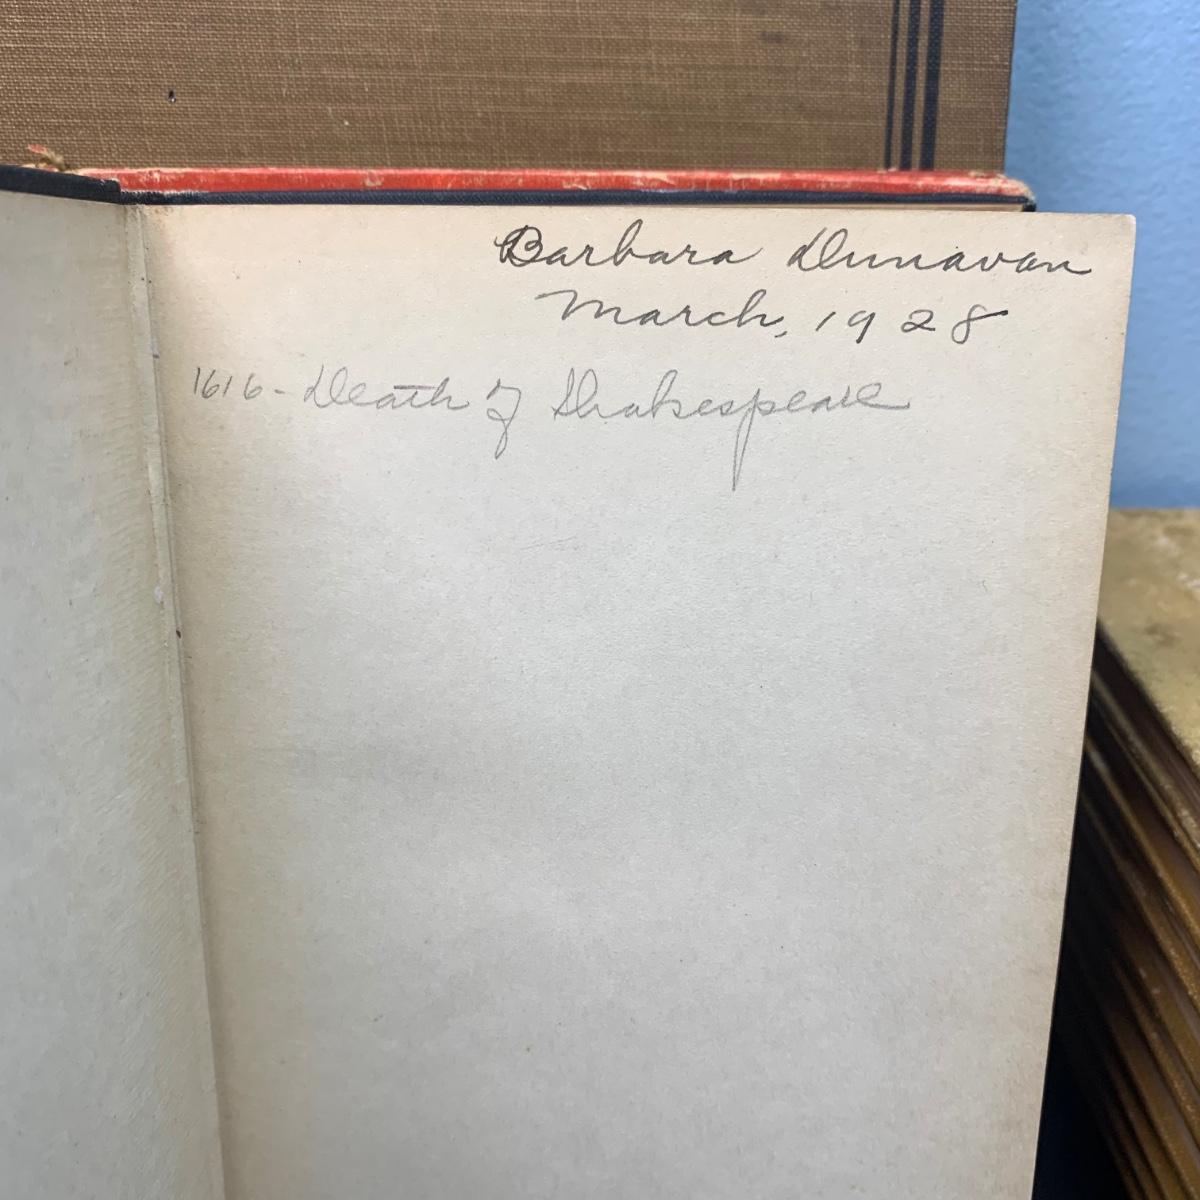 Barbara Dunavan
March, 1928
1616 - Death of Shakespeare